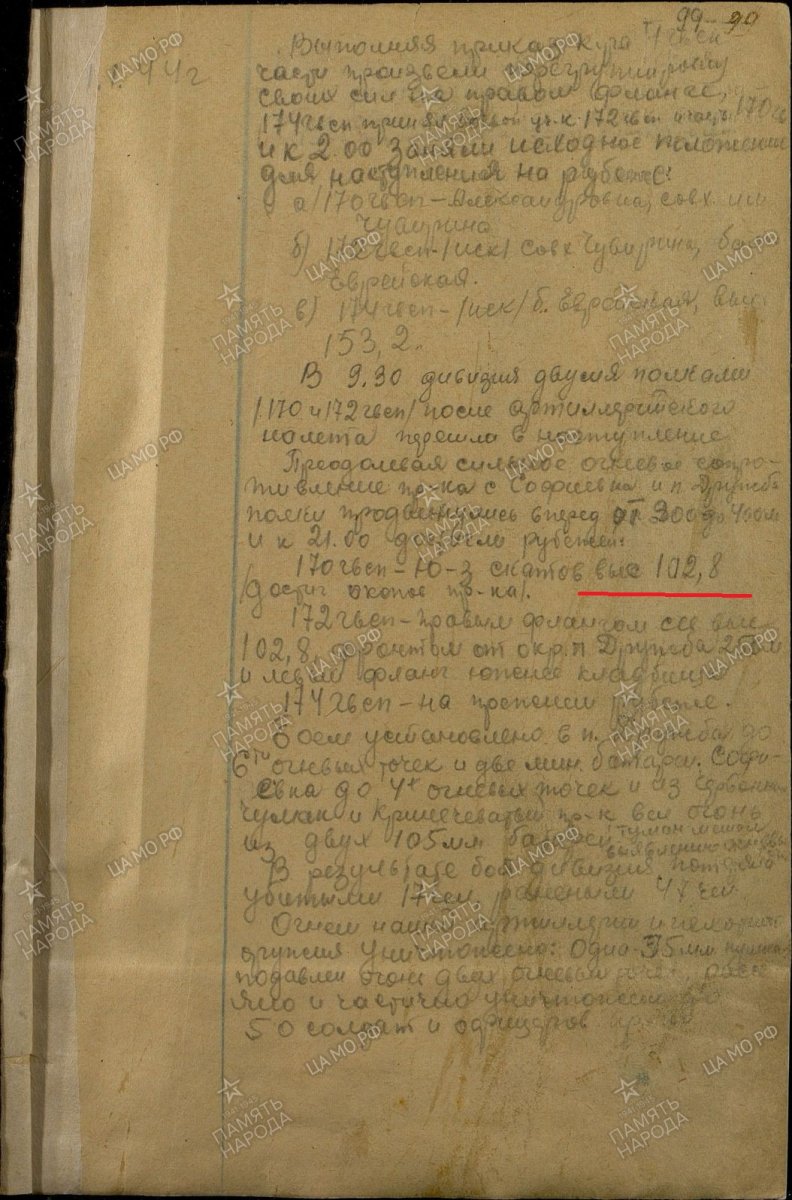 99 90
Выполняя приказ к-ра
части произвели перегруппировку
своих сил на правом фланге,
174 гвсп принял боевой уч-к 172 гвсп и часть 170 гв
и к 2.00 заняли исходное положение
для наступления на рубеже:
а/ 170 гвсп – Александровка, совх. им
Чубирина
б) 172 гвсп – /иск/ совх Чубирина, бал
Еврейская.
в) 174 гвсп – /иск/ б. Еврейская, выс.
153,2.
В 9.30 дивизия двумя полками
/170 и 172 гвсп/ после артиллерийского
налета перешла в наступление
Преодолевая сильное огневое сопро-
тивление пр-ка с Софиевка и п. Дружба
полки продвинулись вперед от 300 до 400м
и к 21.00 достигли рубежей:
170 гвсп – Ю-З скатов выс 102,8
/достиг окопов пр-ка/.
172 гвсп – правым флангом выс
102,8, фронтом от окр. п Дружба
и левый фланг южнее кладбища
174 гвсп – на прежнем рубеже.
Боем установлено в п. Дружба до
6ти огневых точек и две мин. батареи. Софи-
евка до 4х огневых точек и из Червонный
Чумак и Криничеватый пр-к вел огонь
из двух 105 мм батарей /туман мешал
В результате боя дивизия потеряла
убитыми 17 чел, ранеными 47 чел
Огнем нашей артиллерии и пехотного
оружия уничтожено: одна 75 мм пушка
подавлен огонь двух огневых точек, рассе
яно и частично уничтожено до
50 солдат и офицеров пр-ка
ПАМЯТЬ НАРОДА
ЦАМО.РФ